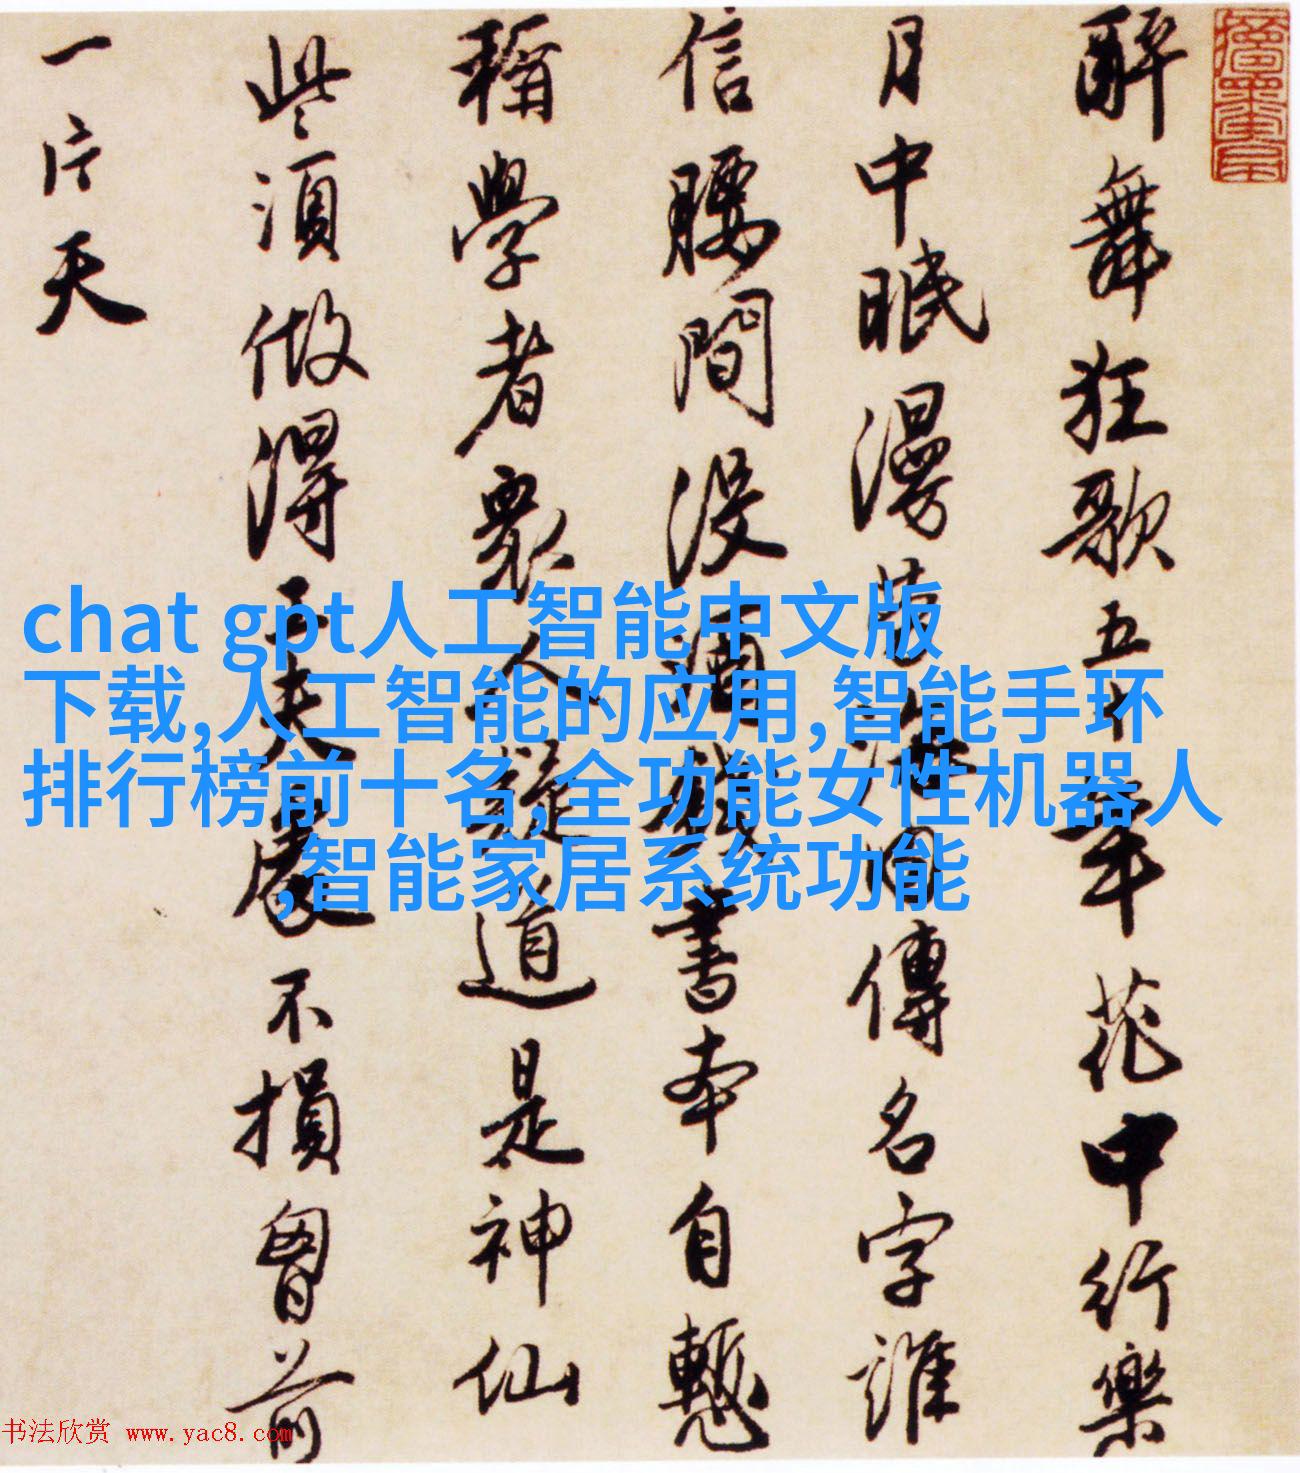 醉舞狂歌五十年花中行樂
月中眠漫勞海內傳名字誰
信腰間沒酒錢書本自慙
稱學者衆人疑道是神仙
些須做得工夫處不損胷前
一片天
chat gpt人工智能中文版
下载,人工智能的应用,智能手环
排行榜前十名,全功能女性机器人
,智能家居系统功能
书法欣赏 www.yac8.com